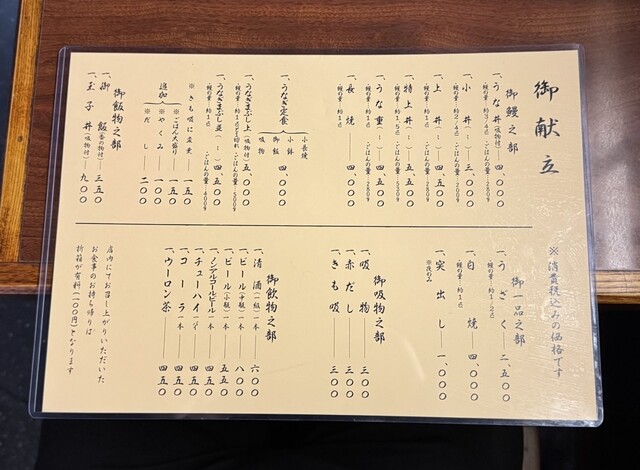 御献立
御鰻之部
一、うな丼(吸物付)――四、〇〇〇
・鰻の量・約3/4匹 ・ごはんの量・280g
一、小丼(〃)――三、〇〇〇
・鰻の量・約2/4匹 ・ごはんの量・280g
一、上丼(〃)――四、五〇〇
・鰻の量・約1匹 ・ごはんの量・280g
一、特上丼(〃)――五、五〇〇
・鰻の量・約1.5匹 ・ごはんの量
一、うな重(〃)――四、五〇〇
・鰻の量・約1匹 ・ごはんの量・280g
一、長焼――四、〇〇〇
・鰻の量・約1匹
一、うなぎ定食――四、〇〇〇
小長焼
小鉢
御飯
吸物
一、うなぎまぶし上(吸物付)――五、〇〇〇
・ごはんの量
一、うなぎまぶし並(〃)――四、五〇〇
・鰻の量・約1匹 ・ごはんの量・400g
※きも吸に変更――一五〇
追加
※ごはん大盛り――一五〇
※やくみ――一〇〇
※だし――二〇〇
御飯物之部
一、御飯(香の物付)――三五〇
一、玉子丼(吸物付)――九〇〇
※消費税込みの価格です
御一品之部
一、うざく――二、五〇〇
・鰻の量・約1/2匹
一、白焼――四、〇〇〇
・鰻の量・約1匹
一、突出し――一、〇〇〇
※夜のみ
御吸物之部
一、吸物――三〇〇
一、赤だし――三〇〇
一、きも吸――三〇〇
御飲物之部
一、清酒(一級)一本――六〇〇
一、ビール(中瓶)一本――八〇〇
一、ビール(小瓶)一本――五五〇
一、ノンアルコールビール一本――四五〇
一、チューハイ――四五〇
一、コーラ一本――四五〇
一、ウーロン茶――四五〇
店内にてお召し上がりいただいた
お食事のお持ち帰りは
折箱が有料(一〇〇円)となります